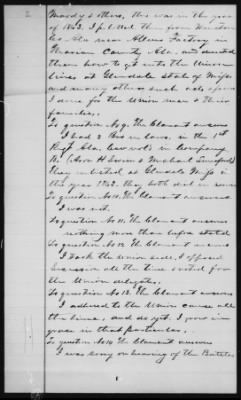 2
Moody & others, this was in the year
of 1862. I piloted them from Winston
Co Ala near Allens Factory in
Marion County, Ala. and directed
them how to get into the Union
lines at Glendale State of Miss
and many other such acts of
I done for the Union men & their
families.
To question No 9. The Claimant answers
I had 2 Bros in laws, in the 1st
Regt Ala. Cav vols in Company
B.
they enlisted at Glendale Miss in
the year 1862. They both died in
To question No 10. The Claimant answers
I was not.
To question No 11. The Claimant answers
nothing more than before stated
To question No 12 The Claimant answers
I took the Union side, I opposed
Secession all the time & voted for
the Union delegates.
To question No 13. The Claimant answers
I adhered to the Union cause all
the time, and do yet. I
in that particular.
To question No 14 The Claimant answers
I was sorry on hearing of the Battles